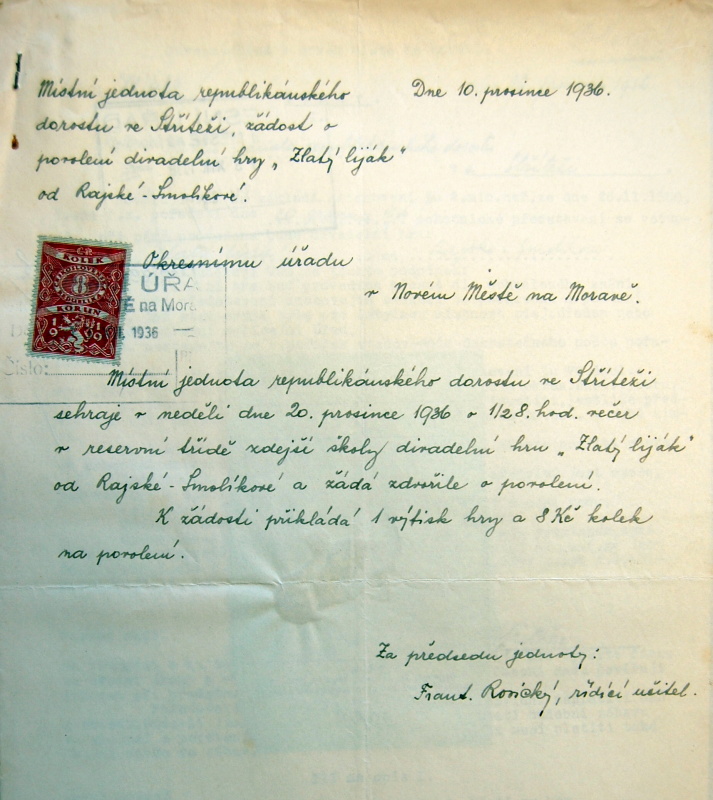 Místní jednota republikánského
Dne 10. prosince 1936.
dorostu ve Stříteži, žádost o
povolení divadelní hry „Zlatý liják"
od Rajské-Smolíkové.
Okresnímu úřadu
v Novém Městě na Moravě.
KOLEK
8
KORUN
ÚŘA
Ě na Mora
1936
Číslo:
Místní jednota republikánského dorostu ve Stříteži
sehraje v neděli dne 20. prosince 1936 o 1/28. hod. večer
v reservní třídě zdejší školy divadelní hru „Zlatý liják"
od Rajské-Smolíkové a žádá zdvořile o povolení.
K žádosti přikládá 1 výtisk hry a 8 Kč kolek
na povolení.
Za předsedu jednoty:
Frant. Rosický, řídící učitel.